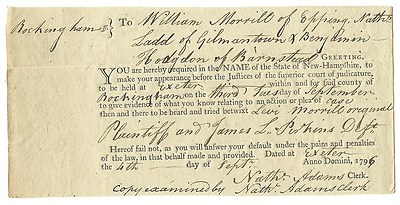 Rockingham ss } To William Morrill of Epping, Nathl.
Ladd of Gilmantown & Benjamin
Hodgdon of Barnstead GREETING.
YOU are hereby required in the NAME of the State of New-Hampshire, to
make your appearance before the Justices of the superior court of judicature,
to be held at Exeter within and for said county of
Rockingham on the third Tuesday of September
to give evidence of what you know relating to an action or plea of case
then and there to be heard and betwixt Levi Morrill original
Plaintiff and James L. Perkins Deft.
Hereof fail not, as you will answer your default under the pains and penalties
of the law, in that behalf made and provided. Dated at Exeter
the 4th day of Septr. Anno Domini, 1796
Nathl. Adams Clerk.
Copy examined by Nathl. Adams Clerk